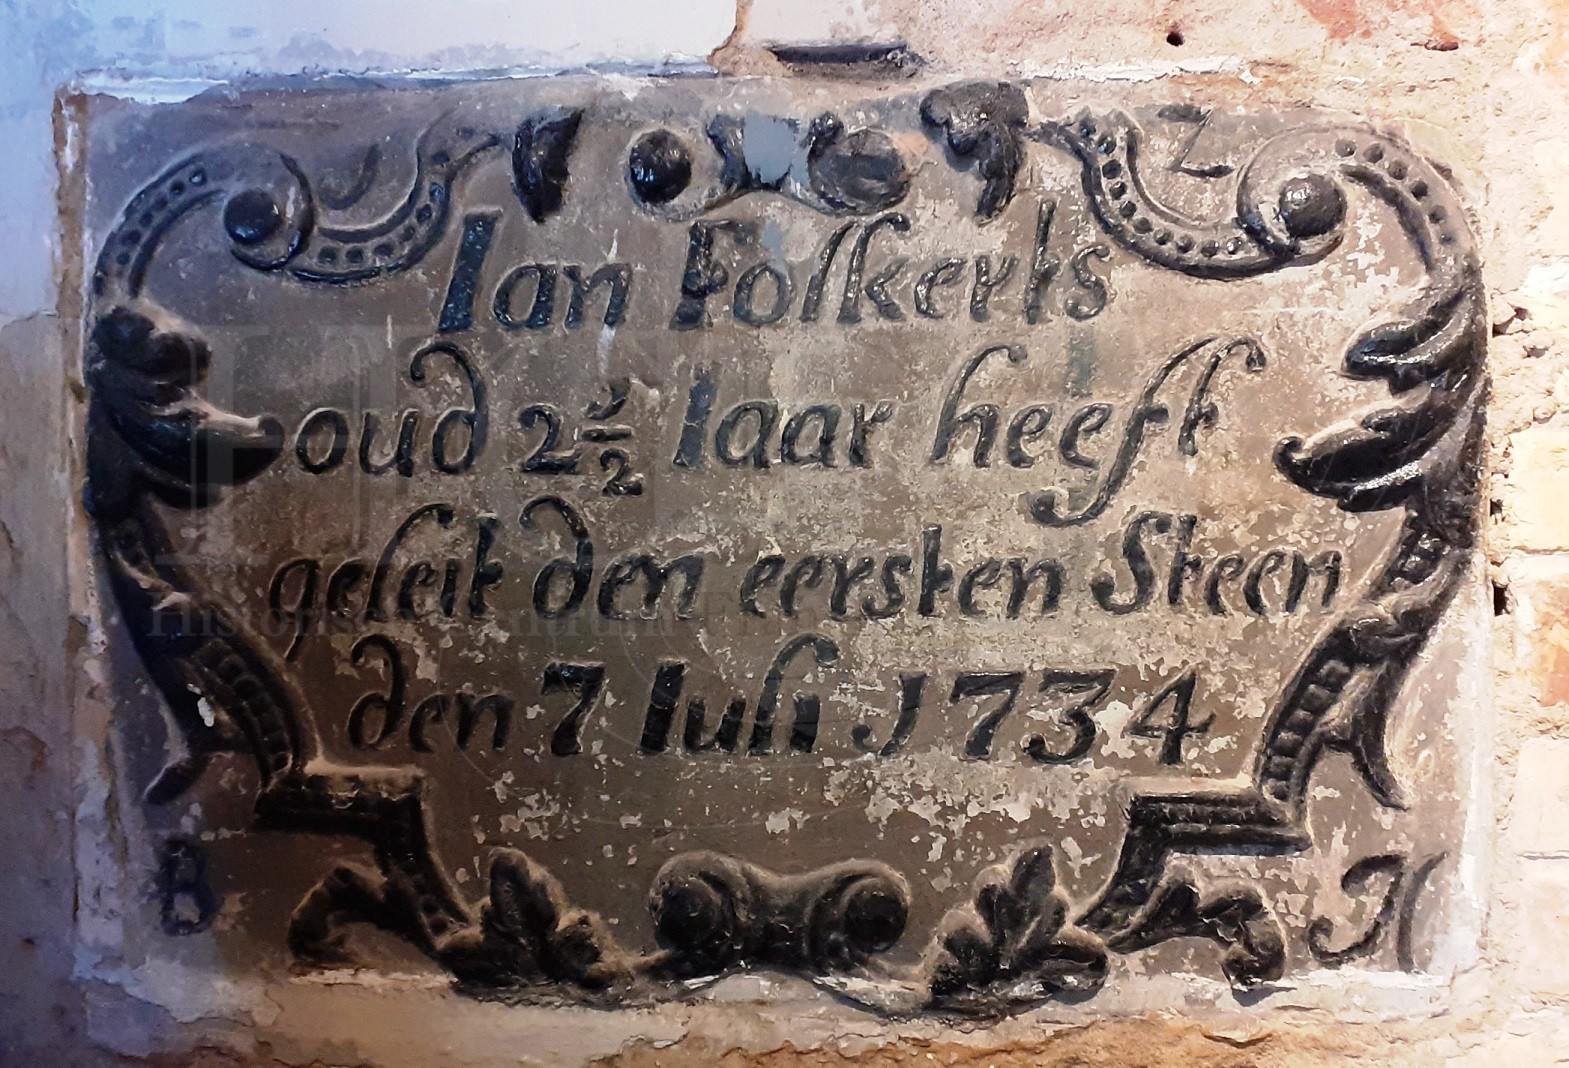 Z
Ian Folkerts
oud 2 ½ Iaar heeft
geleit den eersten Steen
den 7 Iuli 1734
B H